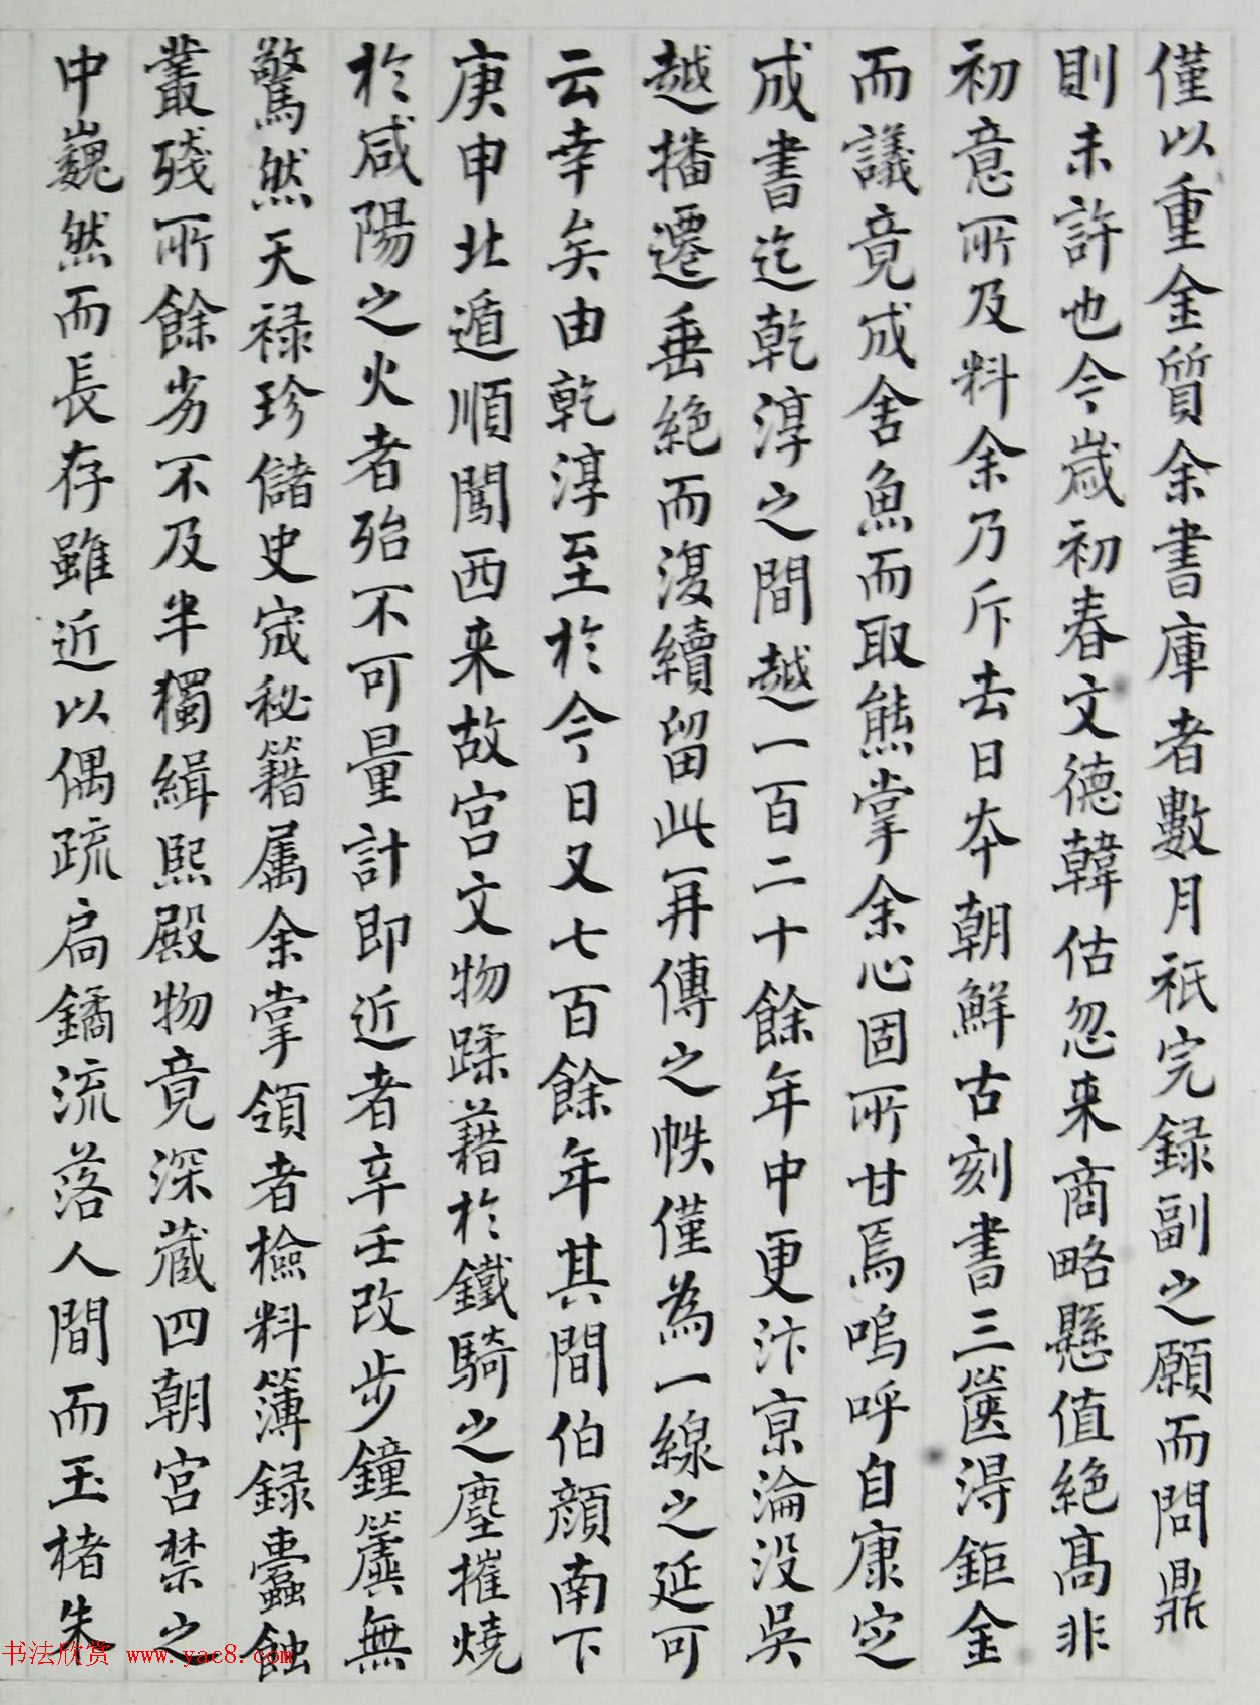 僅以重金質余書庫者數月祇完録副之願而問鼎
則未許也今歲初春文德韓估忽来商略懸值絶髙非
初意所及料余乃斥去日本朝鮮古刻書三篋得鉅金
而議竟成舍魚而取熊掌余心固所甘焉嗚呼自康定
成書迄乾淳之間越一百二十餘年中更汴京淪没吳
越播遷垂絶而復續留此一再傳之帙僅為一線之延可
云幸矣由乾淳至於今日又七百餘年其間伯顔南下
庚申北遁順闖西来故宫文物蹂藉於鐵騎之塵摧燒
於咸陽之火者殆不可量計即近者辛壬改步鐘簴無
驚然天禄珍儲史宬秘籍属余掌領者檢料簿録蠹蝕
叢殘所餘劣不及半獨緝熙殿物竟深藏四朝宫禁之
中巍然而長存雖近以偶疏扃鐍流落人間而玉楮朱
书法欣赏 www.yac8.com